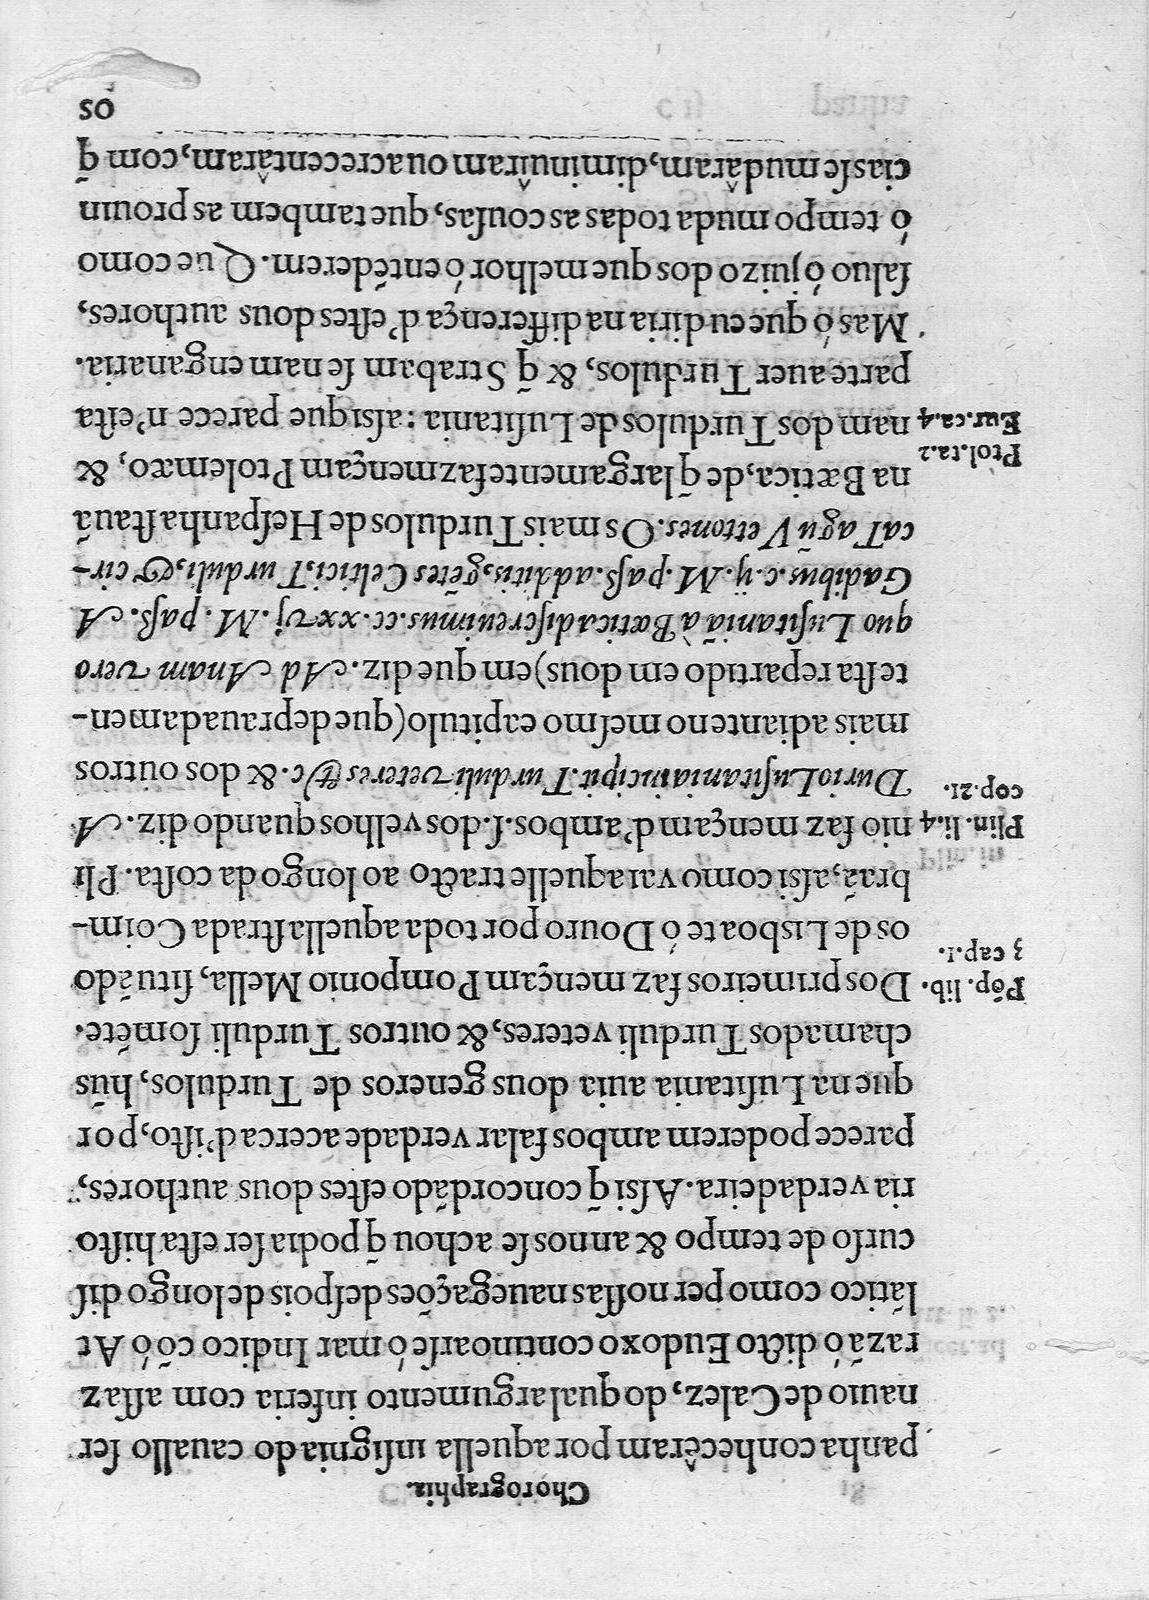 Chorographia.
panha conhecêram por aquella insignia do cauallo ser
nauio de Calez, do qual argumento inferia com assaz
razão ó dicto Eudoxo continoarse ó mar Indico cõ ó At
lãtico como per nossas nauegações despois de longo dis
curso de tempo & annos se achou q̃ podia ser esta histo
ria verdadeira. Assi q̃ concordãdo estes dous authores,
parece poderem ambos falar verdade acerca d'isto, por
que na Lusitania auia dous generos de Turdulos, hũs
chamados Turduli veteres, & outros Turduli somẽte.
Põp. lib.
3 cap.1.
Dos primeiros faz mençam Pomponio Mella, situãdo
os de Lisboa te ó Douro por toda aquella strada Coim-
brãa, assi como vai aquelle tracto ao longo da costa. Pli
Plin. li.4
cop.21.
nio faz mençam d'ambos.s.dos velhos quando diz. A
Durio Lusitania incipit. Turduli veteres &c. & dos outros
mais adiante no mesmo capitulo (que deprauadamen-
te sta repartido em dous) em que diz. Ad Anam vero
quo Lusitaniã à Bætica discreuimus.cc.xxvj. M. pass. A
Gadibus.c.ij.M.pass.additis, gẽtes Celtici, Turduli, & cir-
ca Tagũ Vettones. Os mais Turdulos de Hespanha stauã
Ptol.ta.2
Eur.ca.4
na Bætica, de q̃ largamente faz mençam Ptolemæo, &
nam dos Turdulos de Lusitania: assi que parece n'esta
parte auer Turdulos, & q̃ Strabam se nam enganaria.
Mas ó que eu diria na differença d'estes dous authores,
saluo ó juizo dos que melhor ó entẽderem. Que como
ó tempo muda todas as cousas, que tambem as prouin
cias se mudâram, diminuîram ou acrecentâram, com q̃
os